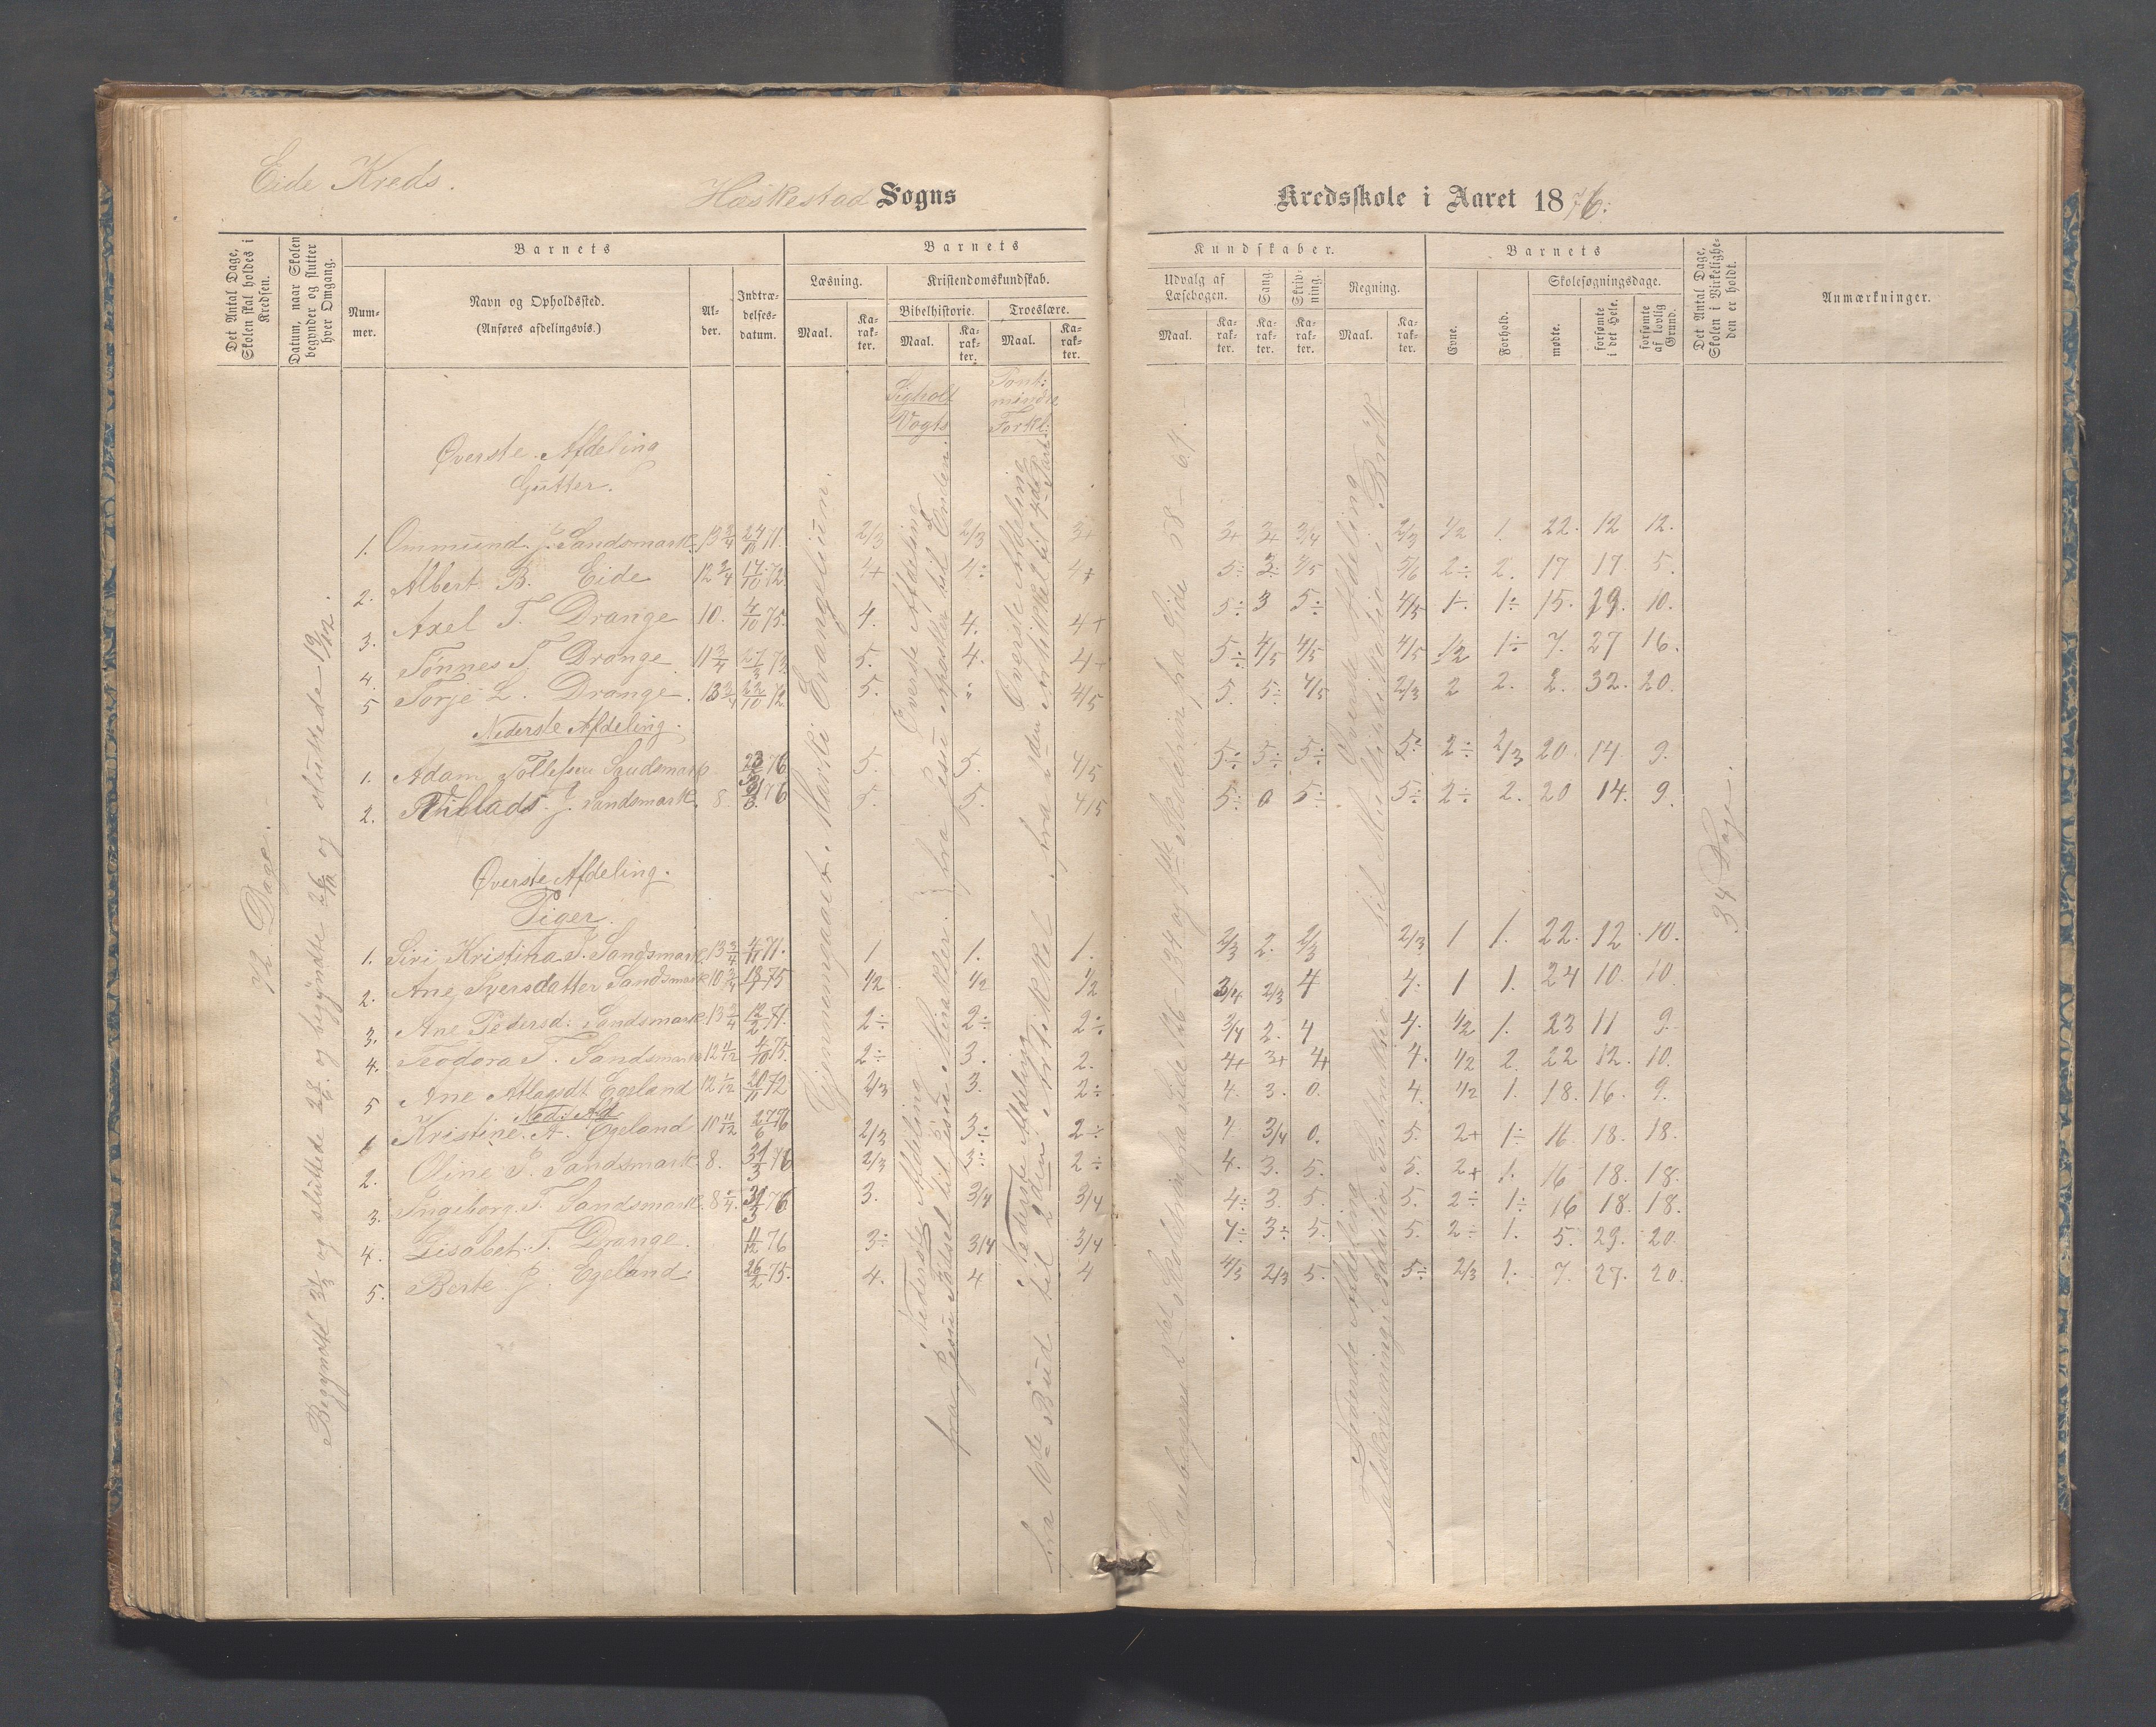 Eide Kreds.
Heskestad Sogns
Kredsskole i Aaret 1876.
Det Antal Dage, Skolen skal holdes i Kredsen.
Datum, naar Skolen begynder og slutter hver Omgang.
Barnets
Num-mer.
Navn og Opholdssted.
(Anføres afdelingsvis.)
Al-der.
Indtræ-delses-datum.
Barnets
Læsning.
Maal.
Ka-rak-ter.
Kristendomskundskab.
Bibelhistorie.
Maal.
Ka-rak-ter.
Troeslære.
Maal.
Ka-rak-ter.
Kundskaber.
Udvalg af Læsebogen.
Maal.
Ka-rak-ter.
Sang.
Ka-rak-ter.
Skriv-ning.
Ka-rak-ter.
Regning.
Maal.
Ka-rak-ter.
Barnets
Evne.
Forhold.
Skolesøgningsdage.
mødte.
forsømte i det Hele.
forsømte af lovlig Grund.
Det Antal Dage, Skolen i Virkelighe-den er holdt.
Anmærkninger.
Vogts
Pont:
mindre
Forkl:
Øverste Afdeling
Gutter.
1. Ommund J. Sandsmark 13 3/4 24/10 71. 2/3 2/3 3+ 3+ 3+ 3/4 2/3 1/2 1. 22. 12 12.
2. Albert B. Eide 12 3/4 17/10 72. 4+ 4÷ 4+ 5÷ 3÷ 4/5 5/6 2÷ 2. 17 17. 5.
3. Axel T. Drange 10. 4/10 75. 4. 4. 4+ 5÷ 3 5÷ 4/5 1÷ 1÷ 15. 19. 10.
4. Tønnes T. Drange 11 3/4 27/3 73. 5. 4. 4+ 5÷ 4/5 4/5 4/5 1/2 1÷ 7. 27 16.
5 Torje L. Drange. 13 3/4 22/10 72. 5. 4/5 5. 5÷ 4/5 2/3 2 2. 2. 32. 20.
Nederste Afdeling.
1. Adam Tollefsen Sandsmark 23/3 76. 5. 5. 4/5 5÷ 5÷ 5÷ 5÷ 2÷ 2/3 20. 14. 9.
2. J. Sandsmark 8. 31/3 76 5. 5. 4/5 5÷ 0 5÷ 5÷ 2÷ 2. 20 14. 9.
Øverste Afdeling.
Piger.
1. Siri Kristina J. Sandsmark 13 3/4 4/11 71. 1 1. 1. 2/3 2. 2/3 2/3 1 1. 22. 12 10.
2. Ane Syersdatter Sandsmark 10 3/4 18/7 75 1/2 1/2 1/2 3/4 2/3 4 4. 1 1. 24 10. 10.
3. Ane Pedersd: Sandsmark 13 3/4 12/2 71. 2÷ 2÷ 2÷ 3/4 2. 4 4. 1/2 1. 23 11 9.
4. Teodora T. Sandsmark 12 11/12 4/10 75. 2÷ 3. 2. 4+ 3+ 4+ 4. 1/2 2. 22 12. 10.
5 Ane Atlagsdt. Egeland 12 1/12 20/11 72 2/3 3. 2÷ 4. 3. 0. 4. 1/2 1. 18. 16. 9.
Ned: Afd
1 Kristine A. Egeland 10 11/12 27/6 76 2/3 3÷ 2÷ 4. 3/4 0. 5. 2+ 1÷ 16. 18. 18.
2. Oline P. Sandsmark 8. 31/3 76 2/3 3÷ 2÷ 4. 3. 5. 5. 2+ 1. 16 18. 18.
3. Ingeborg T. Sandsmark 8 1/4. 31/3 76. 3. 3/4 3/4 4÷ 3. 5. 5. 2÷ 1÷ 16 18. 18.
4. Lisabet T. Drange. 11/12 76 3÷ 3/4 3/4 4÷ 3÷ 5. 5. 2÷ 1. 5. 29. 20.
5. Berte J. Egeland 26/2 75. 4. 4 4 4/5 2/3 5. 5÷ 2/3 1. 7. 27. 20.
72 Dage.
Begyndte 31/3 og sluttede 28/6. og begyndte 26/10 og sluttede 19/12.
Gjennemgaaet Marki Evangelium.
Øverste Afdeling
fra Jesu Mirakler til Enden.
Nederste Afdeling
fra Jesu Fødsel til Jesu Mirakler.
Øverste Afdeling
fra 2den Artikkel til 4de Part
Nederste Afdeling
fra 10de Bud til 2den Artikkel
Læsebogens 2det Skoletrin fra Side 126–134 og 1ste Skoletrin fra Side 58–69.
Øverste Afdeling
til Multiplikation i Brøk
Nederste Afdeling
Tabelregning i Addition Subtraktion
34 Dage.